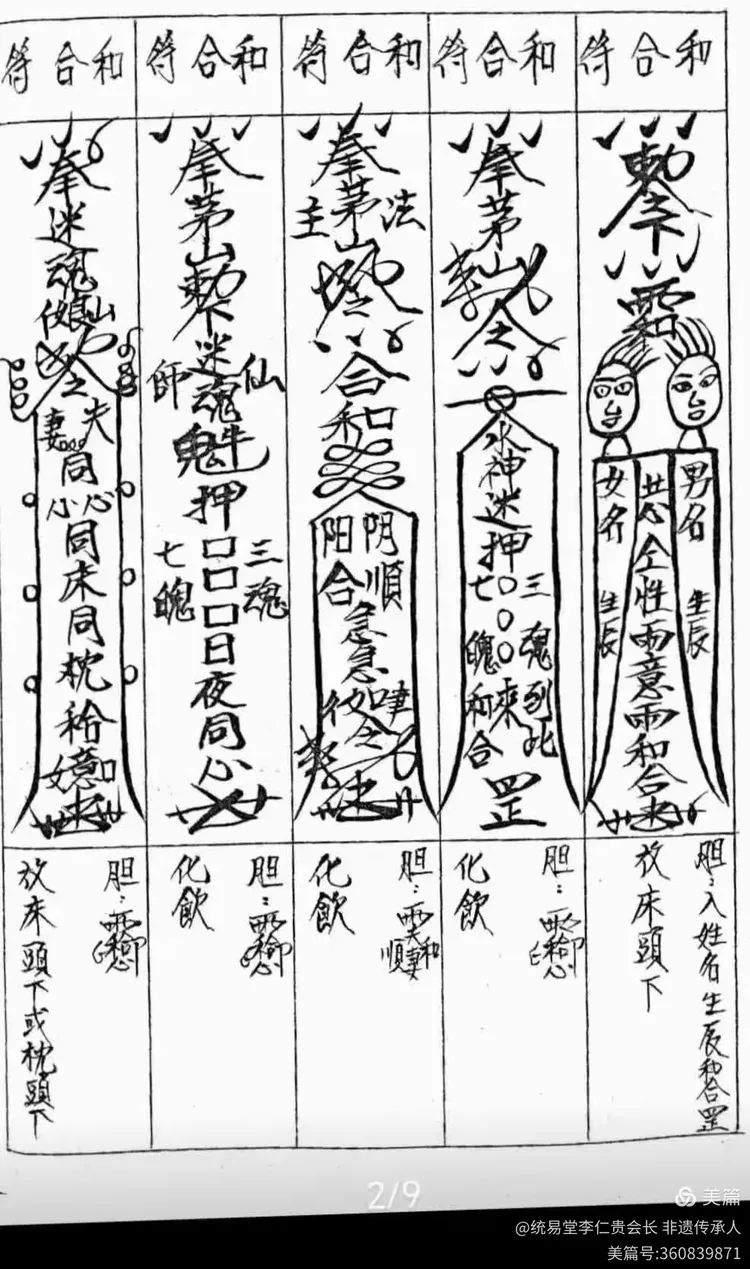 和合符
勅令下
男名 生辰
共心仝性兩意兩和合
女名 生辰
胆：入姓名生辰和合罡
放床頭下
和合符
奉茅山
令
水神迷押○○○來
三魂到此
七魄和合
罡
胆：
化飲
和合符
奉茅山
法主
合和
阴順
阳合
急急如
令
胆：
化飲
和合符
奉茅山勅下迷魂
仙師
押口口口日夜同心
三魂
七魄
胆：
化飲
和合符
奉迷魂
夫妻
同心同床同枕
胆：
放床頭下或枕頭下
2/9
美篇
@统易堂李仁贵会长 非遗传承人
美篇号:360839871